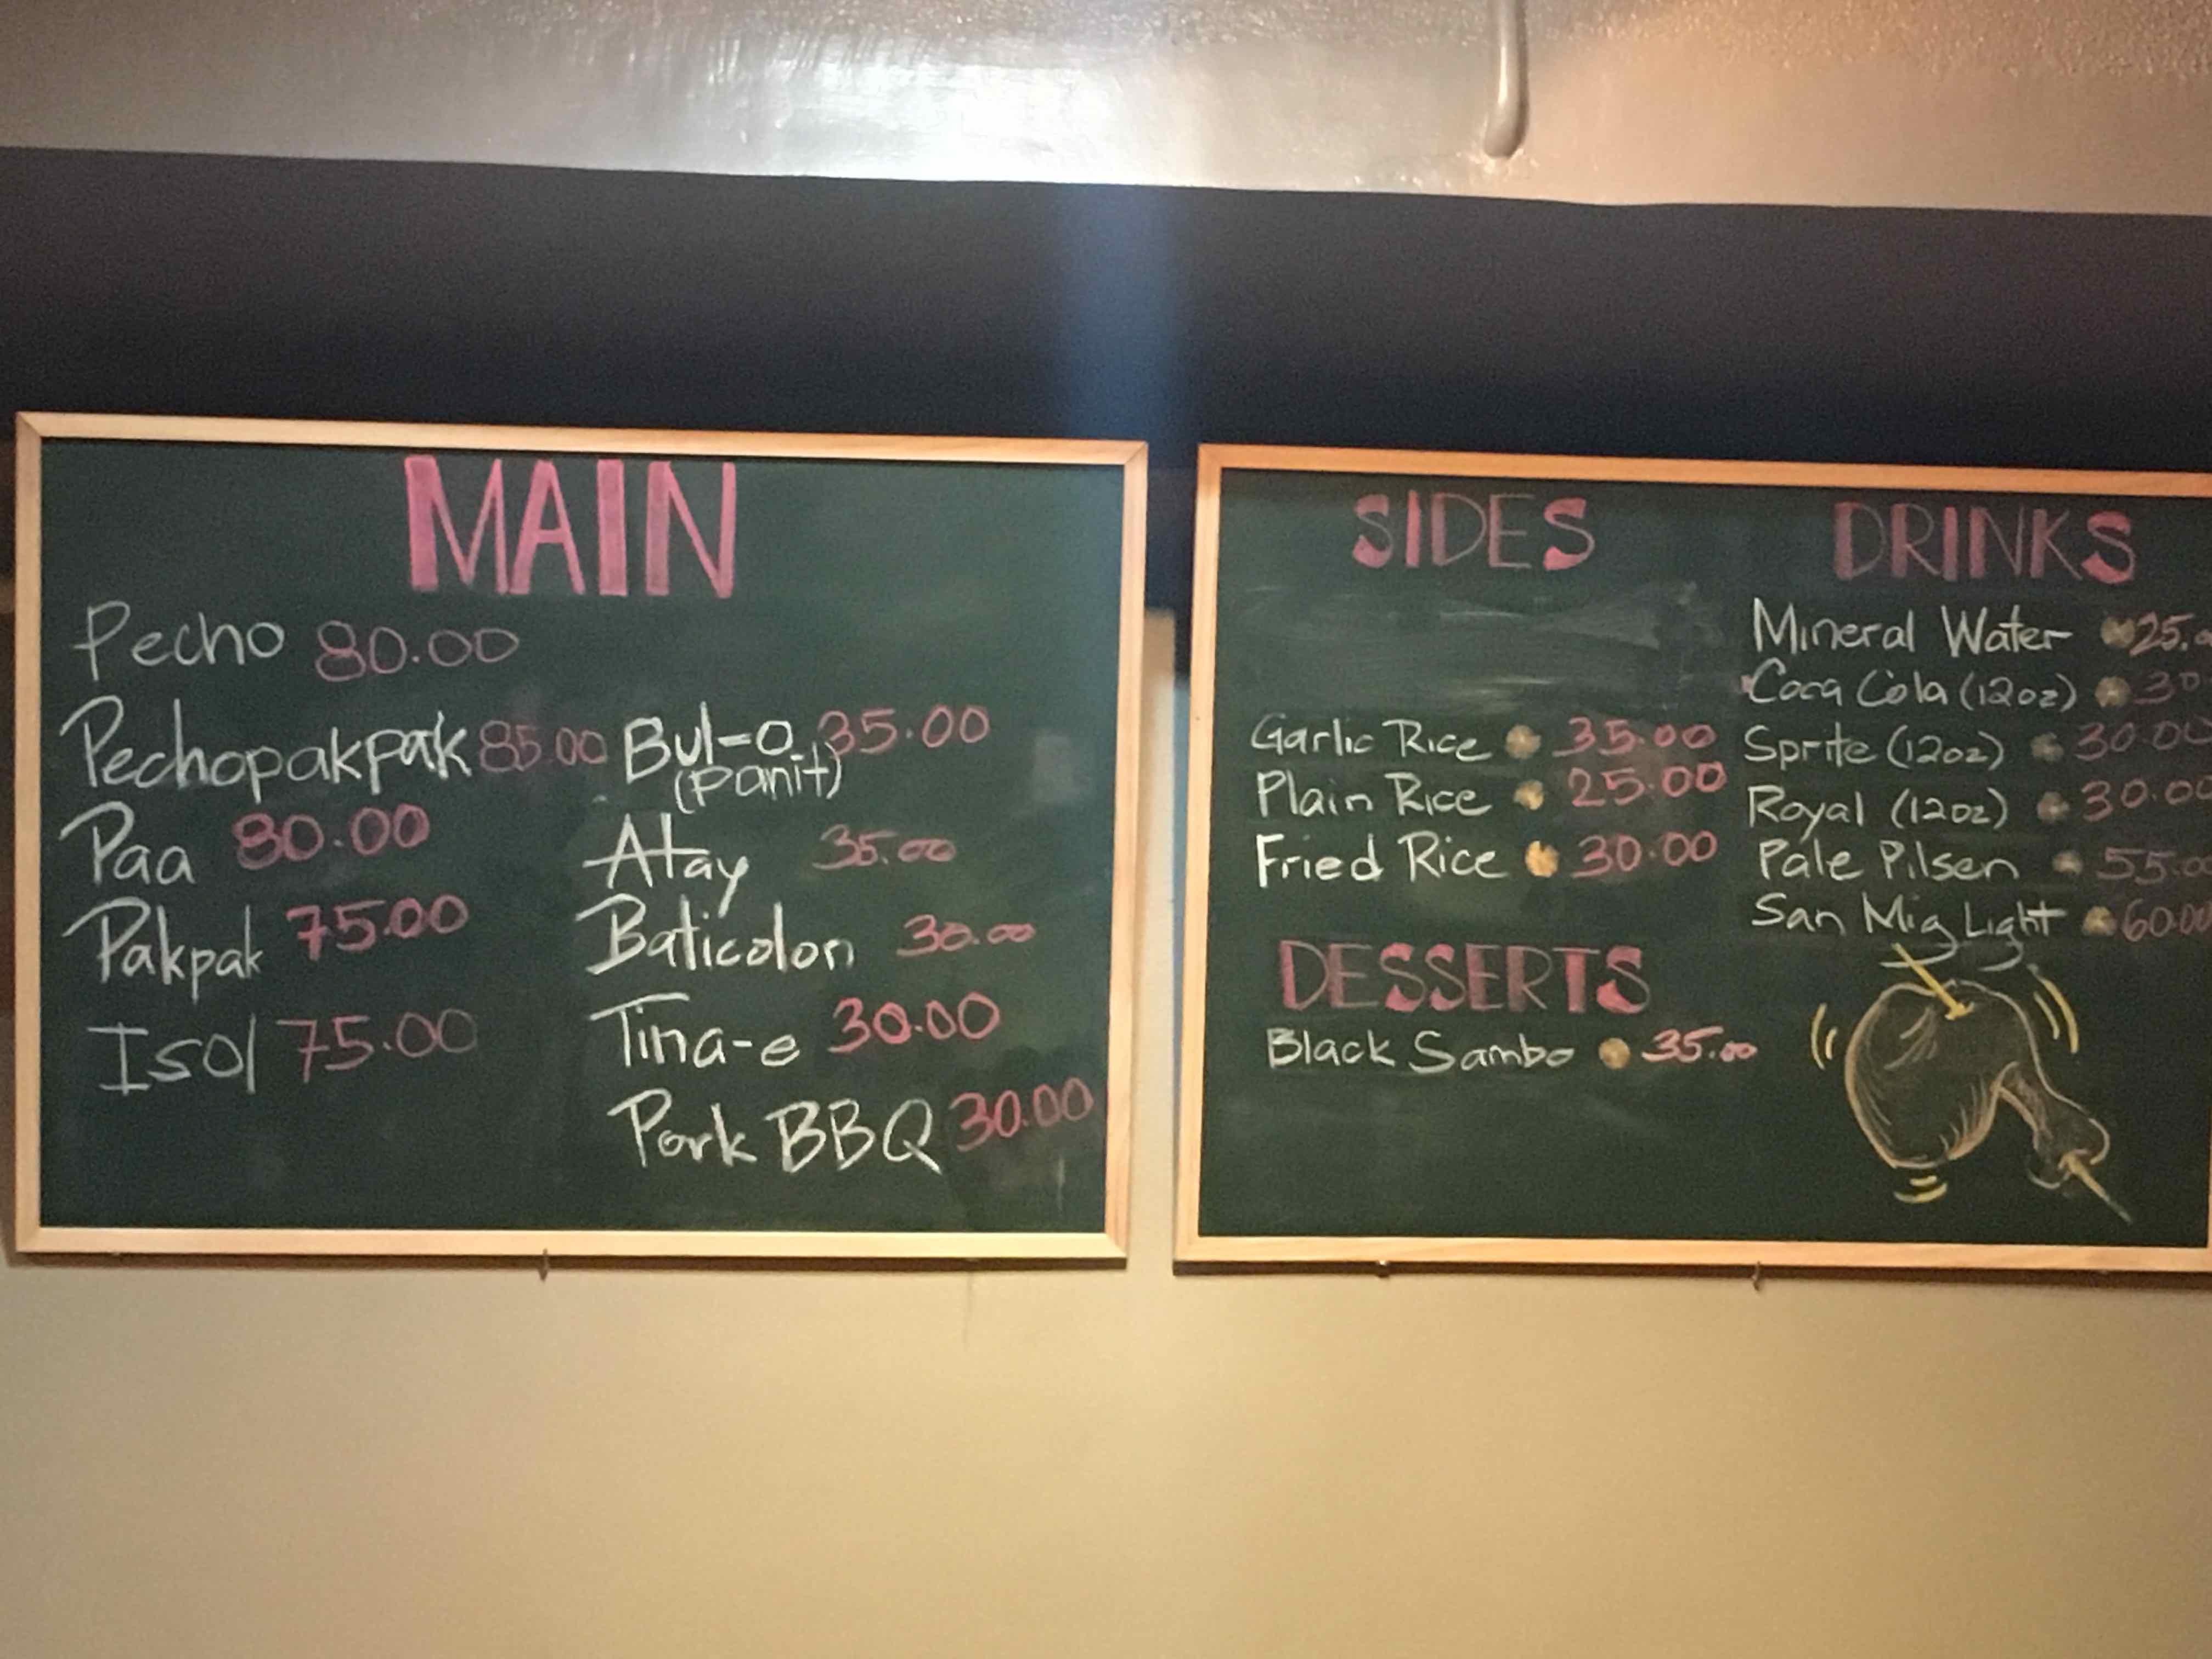 MAIN
Pecho 80.00
Pechopakpak 85.00
Paa 80.00
Pakpak 75.00
Isol 75.00
Bul-o 35.00
(panit)
Atay 35.00
Baticolon 30.00
Tina-e 30.00
Pork BBQ 30.00
SIDES
Garlic Rice 35.00
Plain Rice 25.00
Fried Rice 30.00
DESSERTS
Black Sambo 35.00
DRINKS
Mineral Water 25.
Coca Cola (12oz) 30
Sprite (12oz) 30.00
Royal (12oz) 30.00
Pale Pilsen 55.0
San Mig Light 60.00